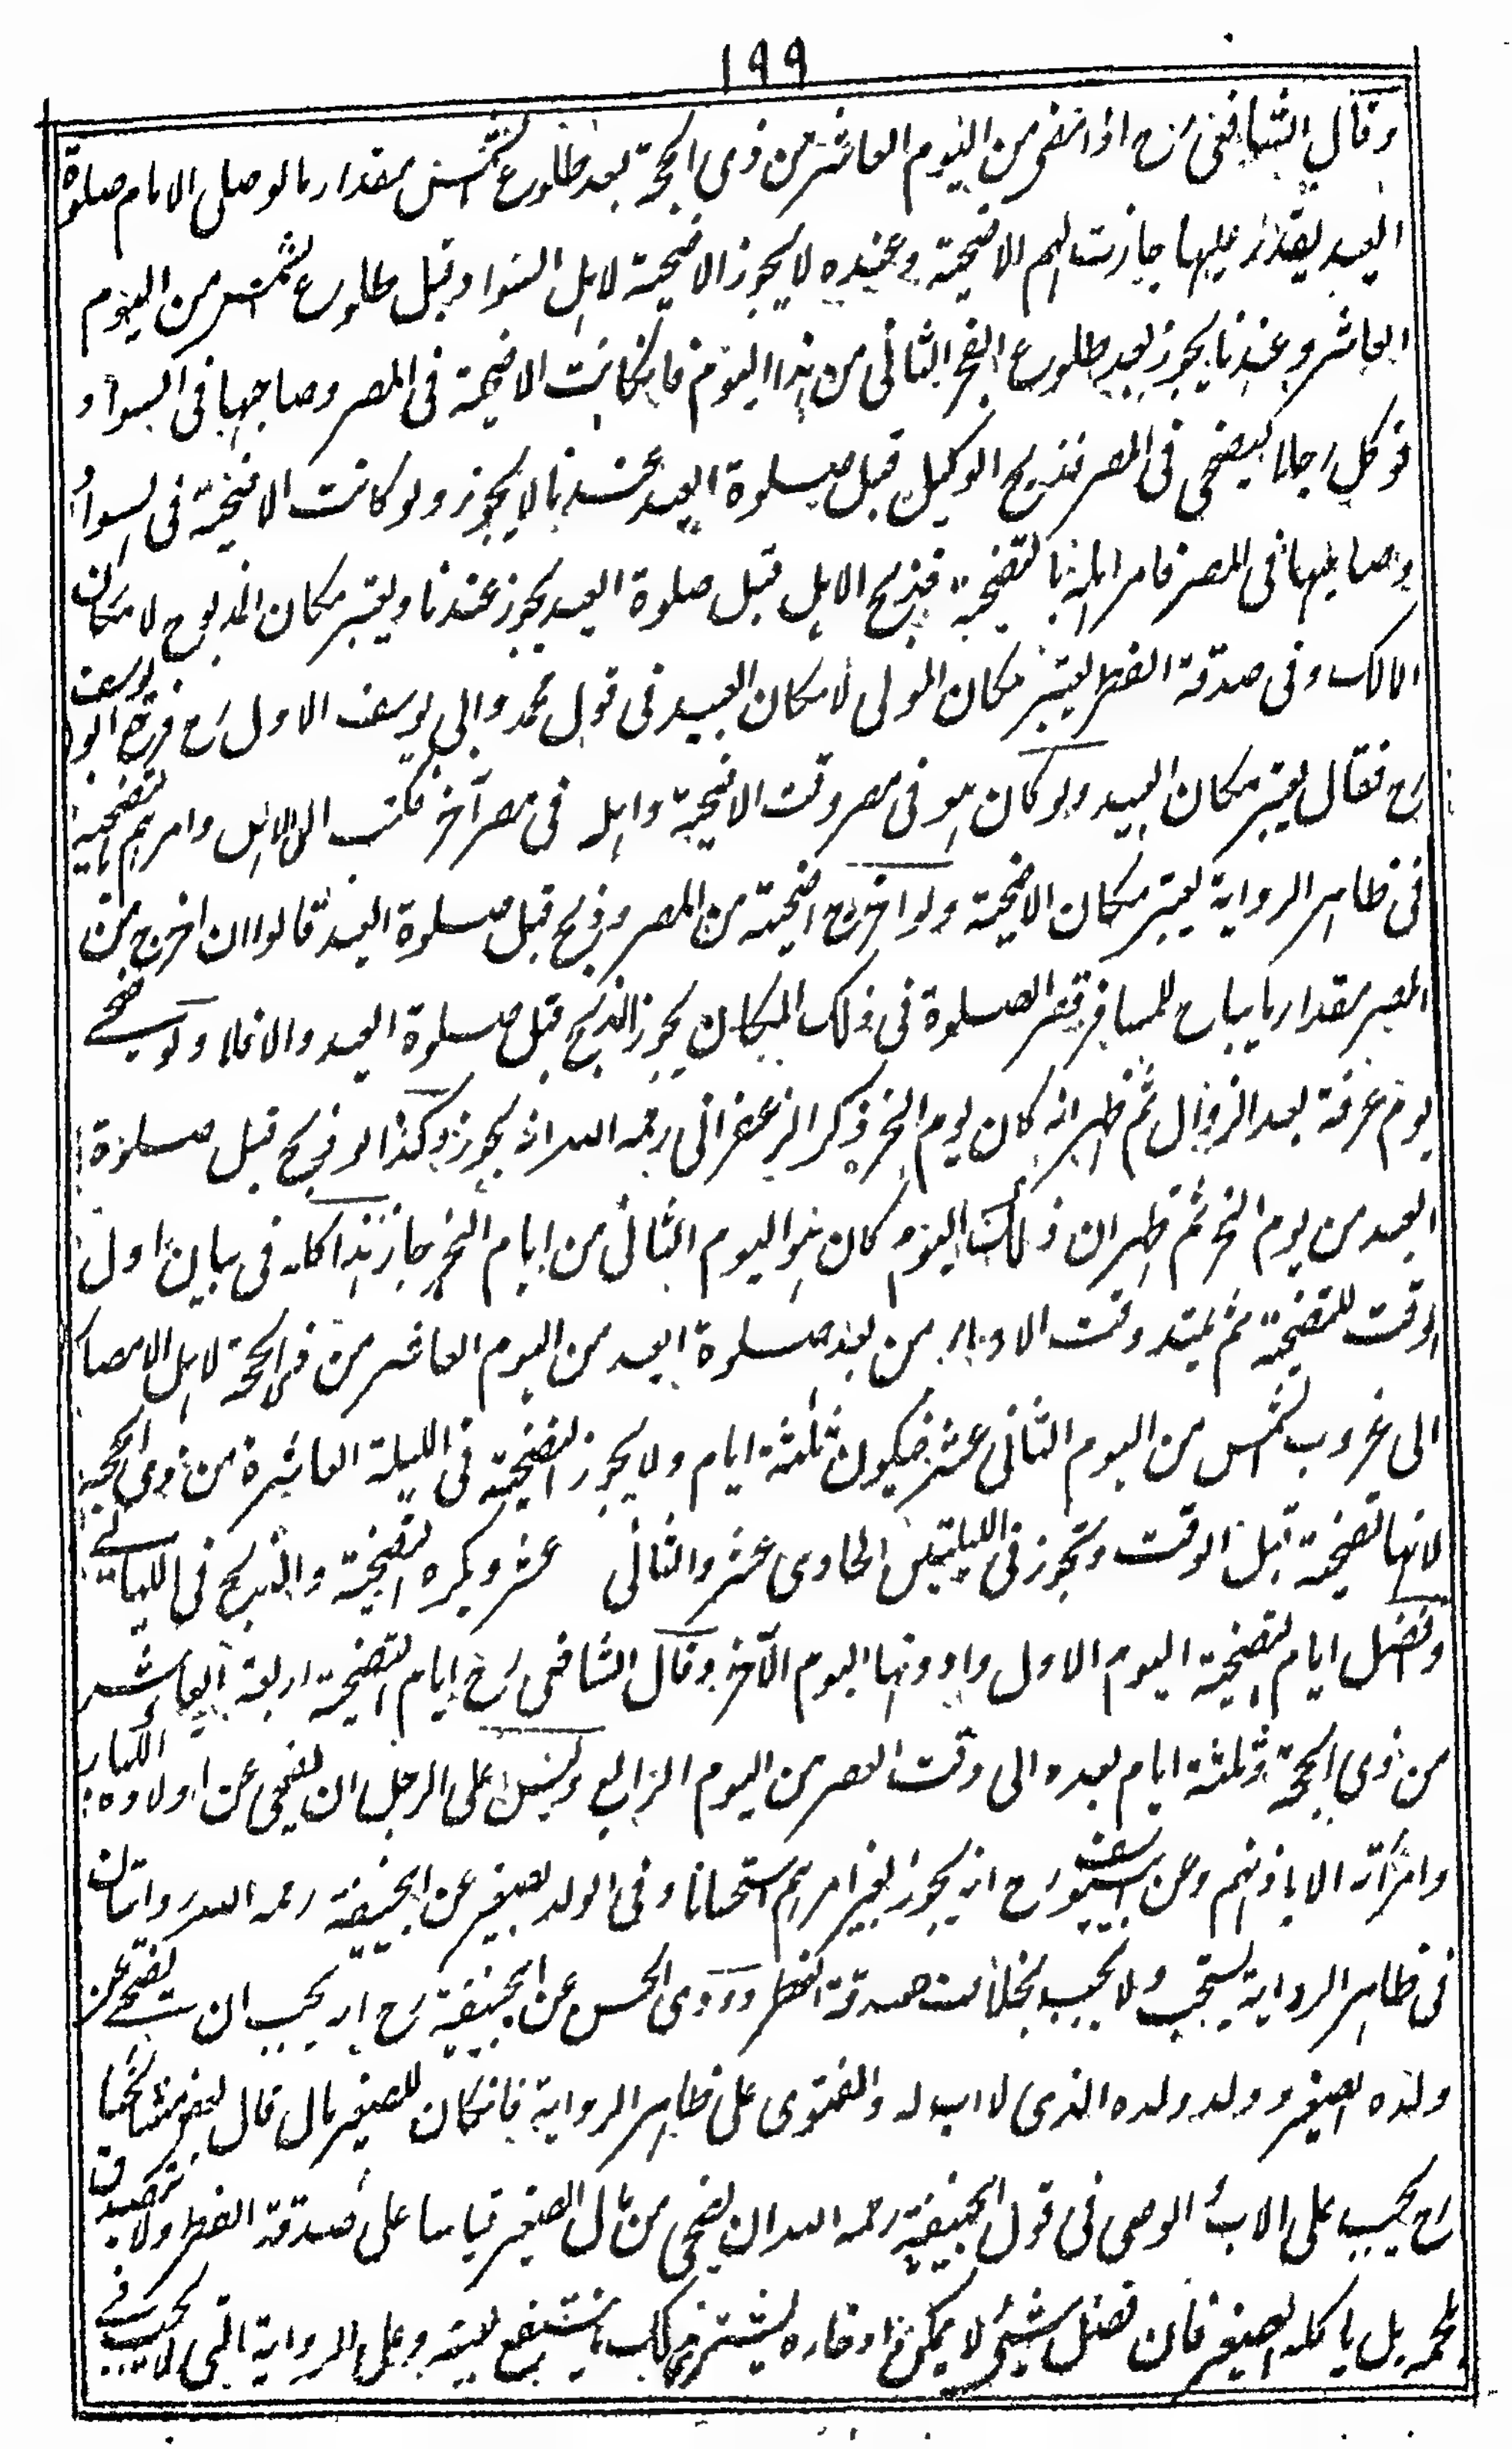 ١٩٩
وقال الشافعى رح اذا مضى من اليوم العاشر من ذى الحجة بعد طلوع الشمس مقدار ما لو صلى الامام صلوة
العيد يقدر عليها جازت لهم الاضحية وعنده لا يجوز الاضحية لاهل السواد قبل طلوع الشمس من اليوم
العاشر وعندنا يجوز بعد طلوع الفجر الثانى من هذا اليوم فانكانت الاضحية فى المصر وصاحبها فى السواد
فوكل رجلا ليضحى فى المصر فذبح الوكيل قبل صلوة العيد عندنا لا يجوز ولو كانت الاضحية فى السواد
وصاحبها فى المصر فامر اهله بالتضحية فذبح الاهل قبل صلوة العيد يجوز عندنا ويعتبر مكان المذبوح لا مكان
المالك وفى صدقة الفطر يعتبر مكان المولى لا مكان العبيد فى قول محمد وابى يوسف الاول رح فرجع ابو يوسف
رح فقال يعتبر مكان العبيد ولو كان هو فى مصر وقت الاضحية واهله فى مصر آخر فكتب الى الاهل وامرهم بالتضحية
فى ظاهر الرواية يعتبر مكان الاضحية ولو اخرج اضحيته من المصر وذبح قبل صلوة العيد قالوا ان اخرج من
المصر مقدار ما يباح للمسافر قصر الصلوة فى ذلك المكان يجوز الذبح قبل صلوة العيد والا فلا ولو ضحى
يوم عرفة بعد الزوال ثم ظهر انه كان يوم النحر ذكر الزعفرانى رحمه الله انه يجوز وكذا لو ذبح قبل صلوة
العيد من يوم النحر ثم ظهر ان ذلك اليوم كان هو اليوم الثانى من ايام النحر جاز هذا كله فى بيان اول
الوقت للتضحية ثم يمتد وقت الاداء من بعد صلوة العيد من اليوم العاشر من ذى الحجة لاهل الامصار
الى غروب الشمس من اليوم الثانى عشر فيكون ثلثة ايام ولا يجوز التضحية فى الليلة العاشرة من ذى الحجة
لانها تضحية قبل الوقت وتجوز فى الليلتين الحادى عشر والثانى عشر ويكره التضحية والذبح فى الليالى
وافضل ايام التضحية اليوم الاول وادونها اليوم الآخر وقال الشافعى رح ايام التضحية اربعة العاشر
من ذى الحجة وثلثة ايام بعده الى وقت العصر من اليوم الرابع وليس على الرجل ان يضحى عن اولاده الكبار
وامرأته الا باذنهم وعن ابى يوسف رح انه يجوز بغير امرهم استحسانا وفى الولد الصغير عن ابى حنيفة رحمه الله روايتان
فى ظاهر الرواية يستحب ولا يجب بخلاف صدقة الفطر وروى الحسن عن ابى حنيفة رح انه يجب ان يضحى عن
ولده الصغير وولد ولده الذى لا اب له والفتوى على ظاهر الرواية فانكان للصغير مال قال بعض مشائخنا
رح يجب على الاب والوصى فى قول ابى حنيفة رحمه الله ان يضحى من مال الصغير قياسا على صدقة الفطر ولا يتصدق
بلحمه بل ياكله الصغير فان فضل شئ لا يمكن ادخاره يشترى بذلك ما ينتفع بعينه وعلى الرواية التى لا يجب فى